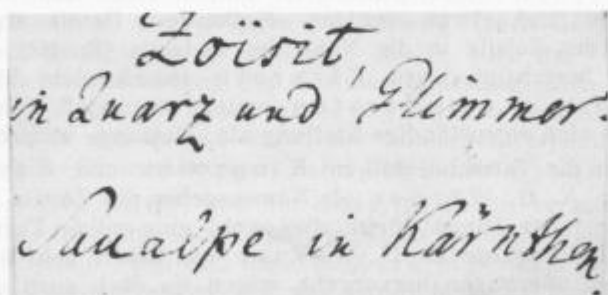 Zoisit
in Quarz und Glimmer.
Saualpe in Kärnthen